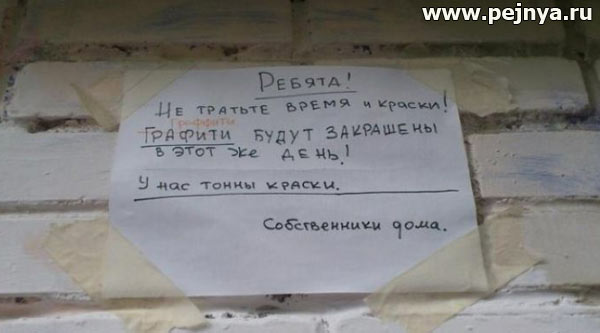 www.pejnya.ru
Ребята!
Не тратьте время и краски!
Граффити
Графити будут закрашены
в этот же день!
У нас тонны краски.
Собственники дома.